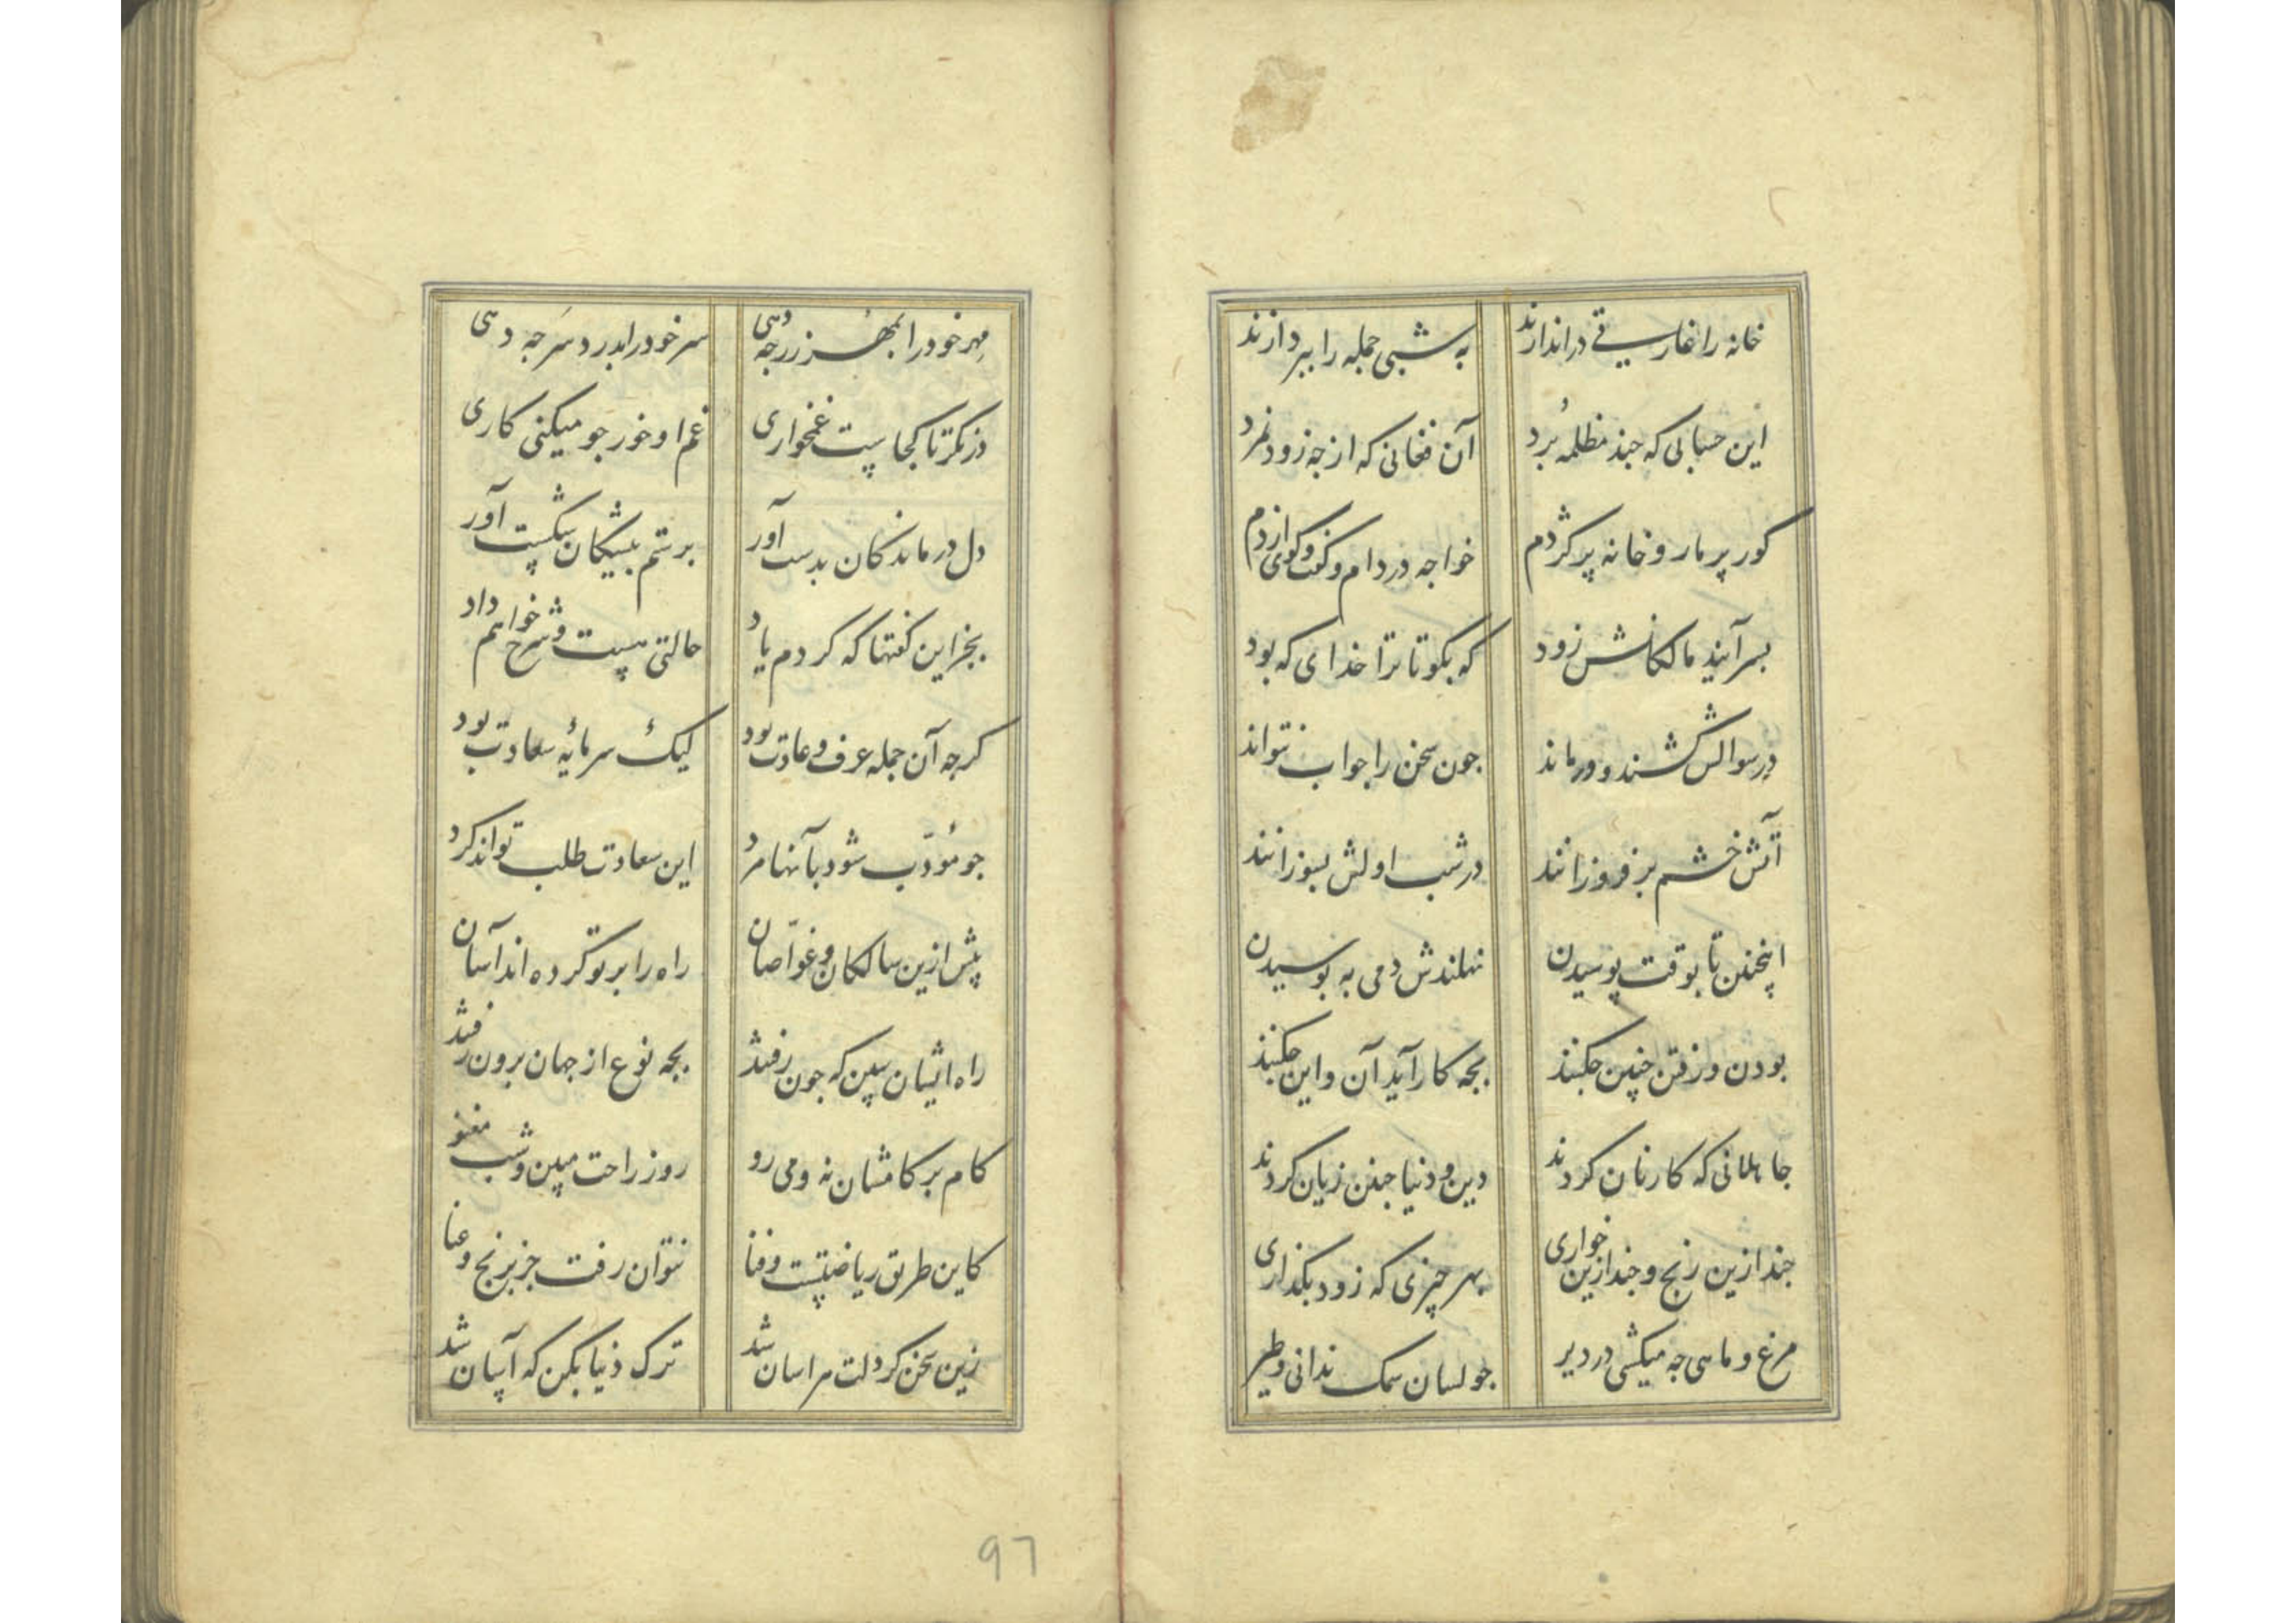 خانه را غارتی در اندازند به شبی جمله را بپردازند
این حسابی که چند مظلمه برد آن فغانی که از چه زود نمرد
کور پر مار و خانه پر کژدم خواجه در دام و گفت و گوی از دم
بسر آیند مالکانش زود که بگو تا ترا خدای که بود
در سوالش کشند و درماند جون سخن را جواب نتواند
آتش خشم بر فروزانند در شب اولش بسوزانند
اینچنین تا بوقت پوسیدن نهلندش دمی به بوسیدن
بودن و رفتن چنین چکنند بچه کار آید آن و این چکنند
جاهلانی که کارنان کردند دین و دنیا جنین زیان کردند
جند ازین رنج و جند ازین خواری بهر چیزی که زود بگذاری
مرغ و ماهی چه میکشی در دیر جو لسان سمک ندانی و طیر
مهر خود را بمهر زر چه دهی سر خود را بدرد سر چه دهی
درنگر تا کجاست غمخواری غم او خور جو میکنی کاری
دل درماندگان بدست آور بر ستم پیشگان شکست آور
بجز این گفتها که کردم یاد حالتی هست و شرح خواهم داد
کرچه آن جمله عرف و عادت بود لیک سرمایه سعادت بود
جو مؤدب شود بآنها مرد این سعادت طلب تواند کرد
پیش ازین سالکان و غواصان راه را بر تو کرده اند آسان
راه ایشان ببین که جون رفتند بچه نوع از جهان برون رفتند
کام بر کامشان نه و می رو روز راحت مبین و شب مغنو
کاین طریق ریاضتست و فنا نتوان رفت جز برنج و عنا
زین سخن کر دلت هراسان شد ترک دنیا بکن که آسان شد
97